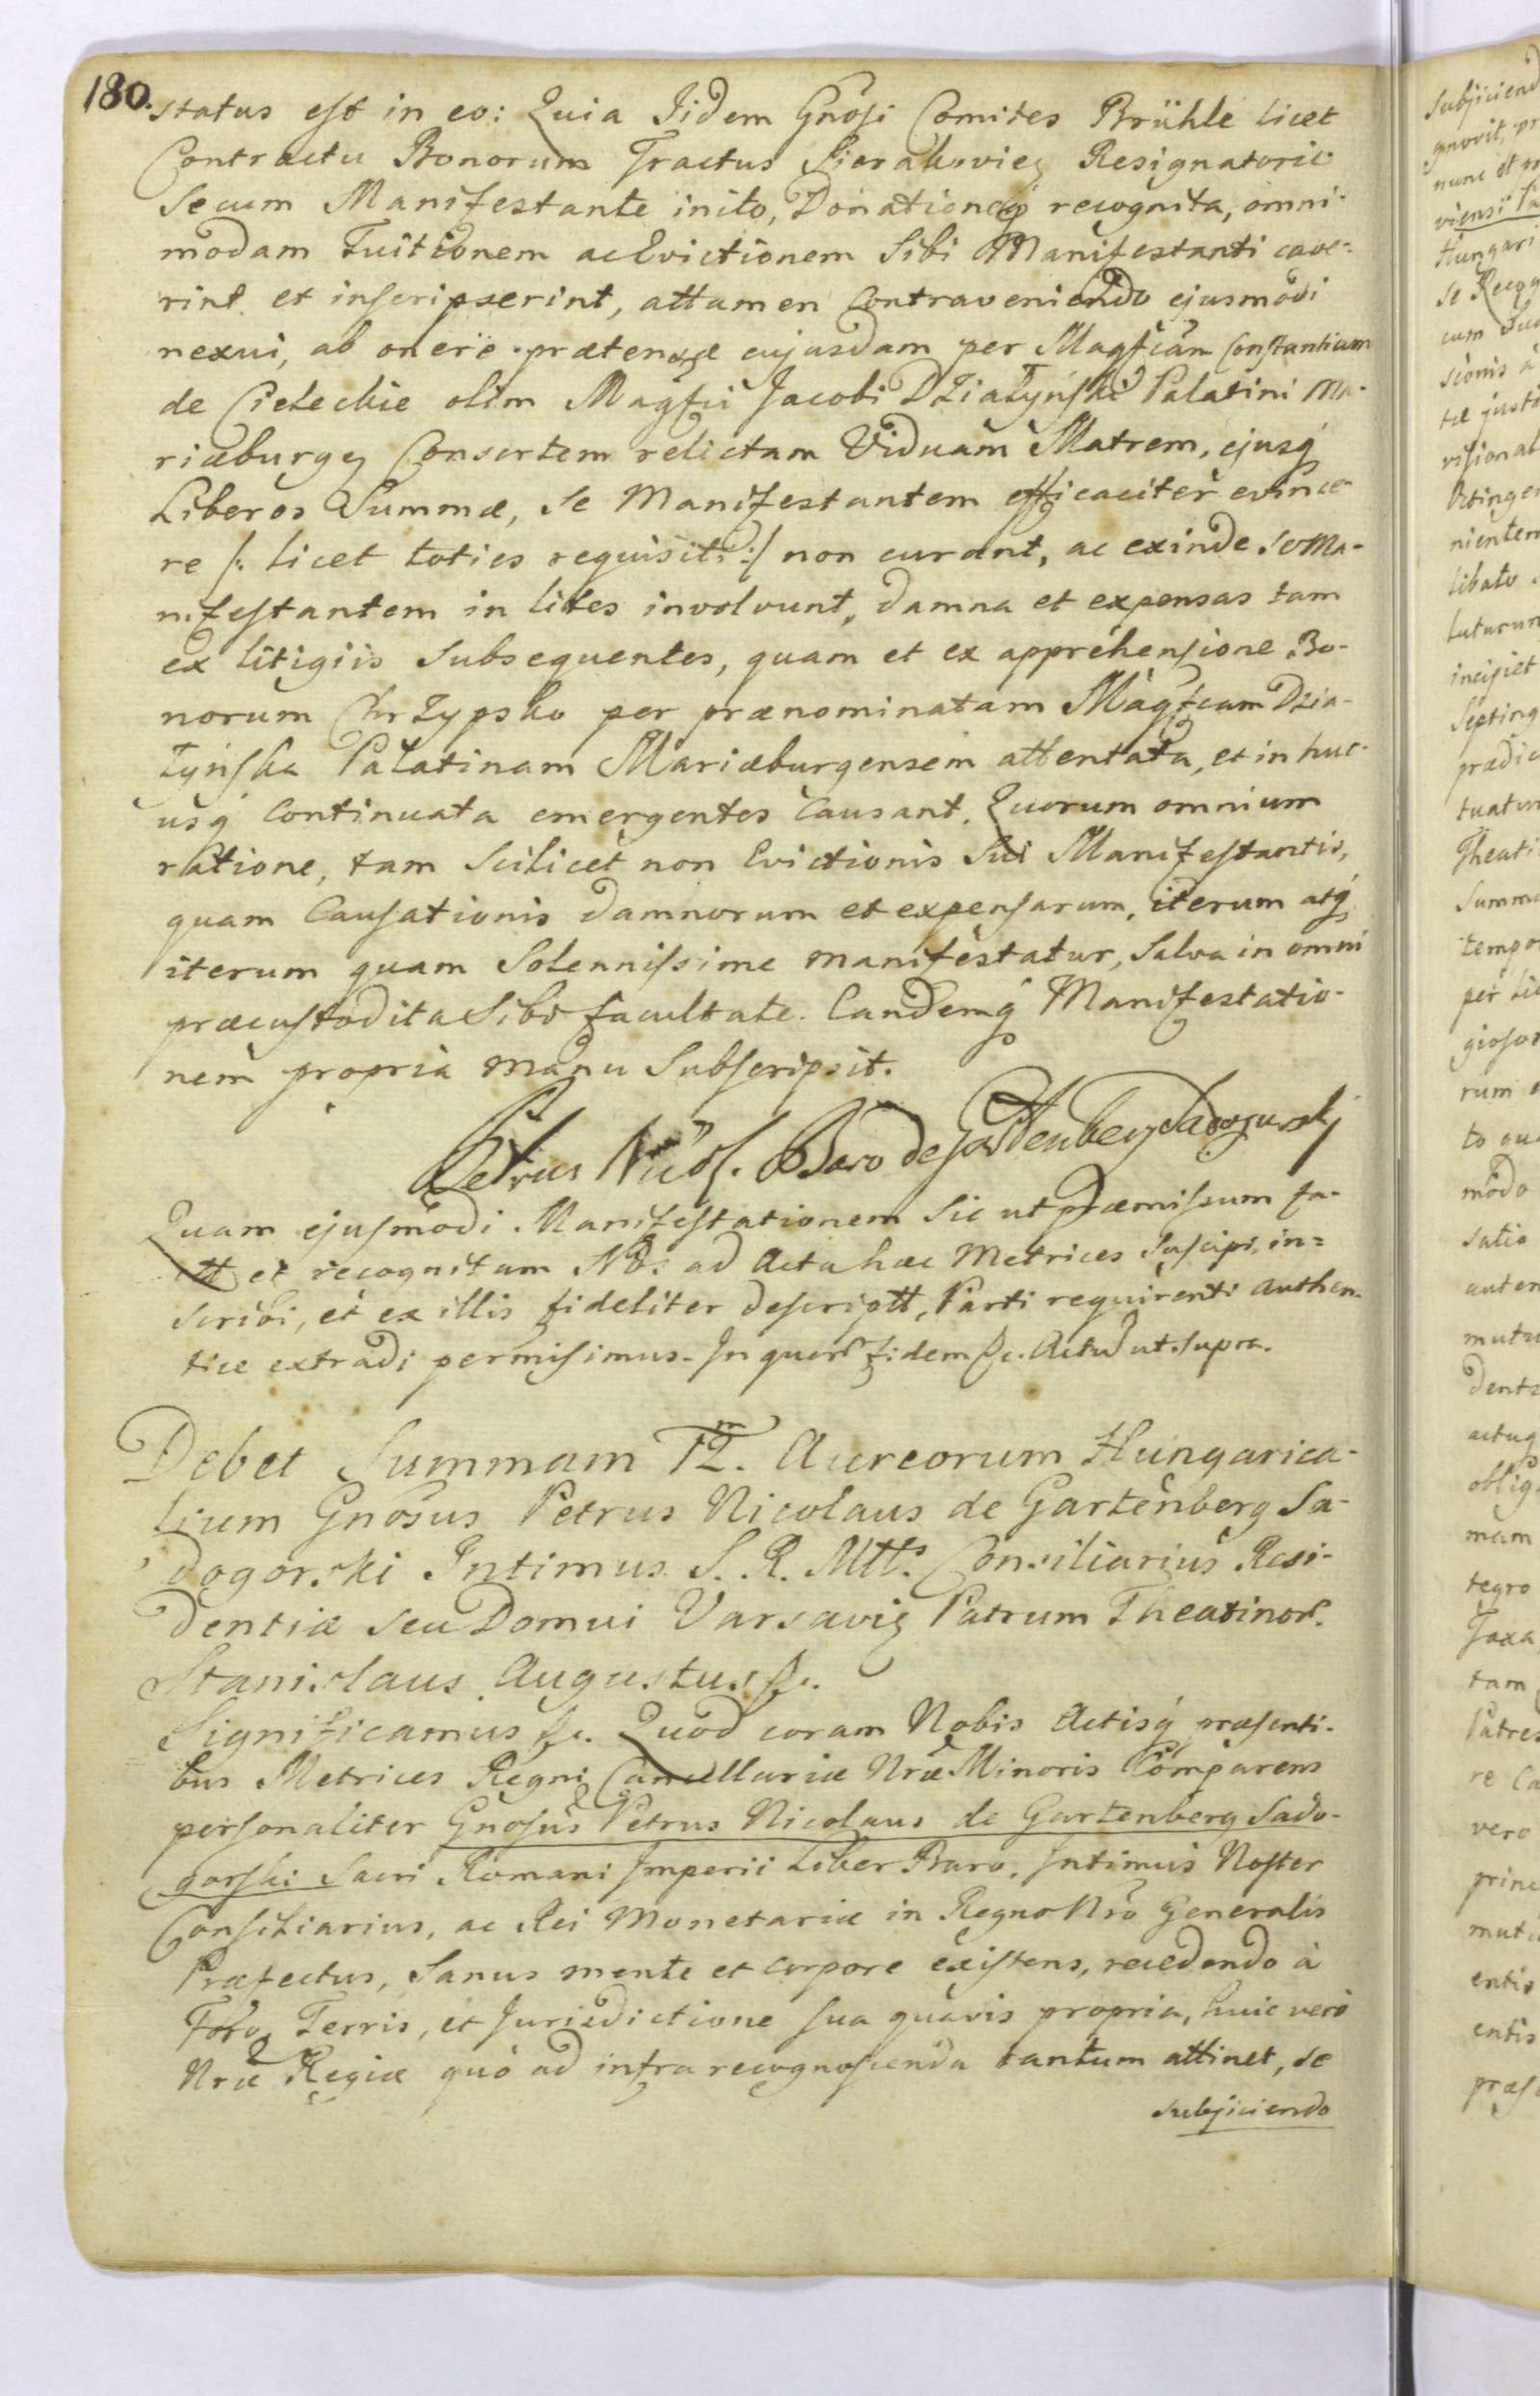 180.
status est in eo: Quia Iidem Gnosi Comites Brühle licet
Contractu Bonorum Tractus Sierakovien Resignatorio
Secum Manifestante inito, Donationeq recognita, omni-
modam Tuitionem ac Evictionem Sibi Manifestanti cave-
rint et inscripserint, attamen Contraveniendo ejusmodi
nexui, ab onere prætensæ cujusdam per Magfcam Constantiam
de Cieleckie olim Magfci Jacobi Działyński Palatini Ma-
riæburgen Consortem relictam Viduam Matrem, ejusq
Liberos Summæ, Se Manifestantem efficaciter evince-
re /: licet toties requisiti :/ non curant, ac exinde Se Ma-
nifestantem in lites involvunt, damna et expensas tam
ex litigiis Subsequentes, quam et ex apprehensione Bo-
norum Chrzypsko per prænominatam Magfcam Dzia-
łyńska Palatinam Mariæburgensem attentata, et in huc-
usq continuata emergentes Causant. Quorum omnium
ratione, tam Scilicet non Evictionis Sui Manifestantis,
quam Causationis damnorum et expensarum, iterum atq
iterum quam Solennissime manifestatur, Salva in omni
præcustodita Sibi facultate. Eandemq Manifestatio-
nem propria manu Subscripsit.
Petrus Nicol. Baro de Gartenberg Sadogursky
Quam ejusmodi Manifestationem Sic ut præmissum fa-
ctt et recognitam Nos ad Acta hæc Metrices Suscipi, in=
scribi, et ex illis fideliter descriptt, Parti requirenti Authen-
tice extradi permisimus. In quor fidem &c. Actu ut supra.
Debet Summam 12.m Aureorum Hungarica-
lium Gnosus Petrus Nicolaus de Gartenberg Sa-
dogorski Intimus S. R. Mtts Consiliarius Resi-
dentiæ seu Domui Varsavien Patrum Theatinor.
Stanislaus Augustus &c.
Significamus &c. Quod coram Nobis Actisq præsenti-
bus Metrices Regni Cancellariæ Nræ Minoris Comparens
personaliter Gnosus Petrus Nicolaus de Gartenberg Sado-
gorski Sacri Romani Imperii Liber Baro, Intimus Noster
Consiliarius, ac Rei Monetariæ in Regno Nro Generalis
Præfectus, Sanus mente et corpore existens, recedendo à
Foro, Terris, et Jurisdictione sua quavis propria, huic vero
Nræ Regiæ quò ad infra recognoscenda tantum attinet, se
subjiciendo